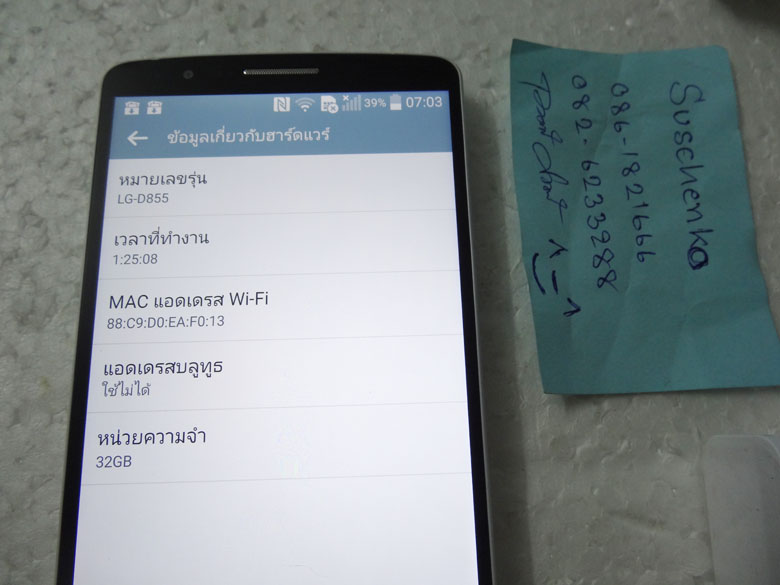 39% 07:03
ข้อมูลเกี่ยวกับฮาร์ดแวร์
หมายเลขรุ่น
LG-D855
เวลาที่ทำงาน
1:25:08
MAC แอดเดรส Wi-Fi
88:C9:D0:EA:F0:13
แอดเดรสบลูทูธ
ใช้ไม่ได้
หน่วยความจำ
32GB
Suschenko
086-1821666
082-6233288